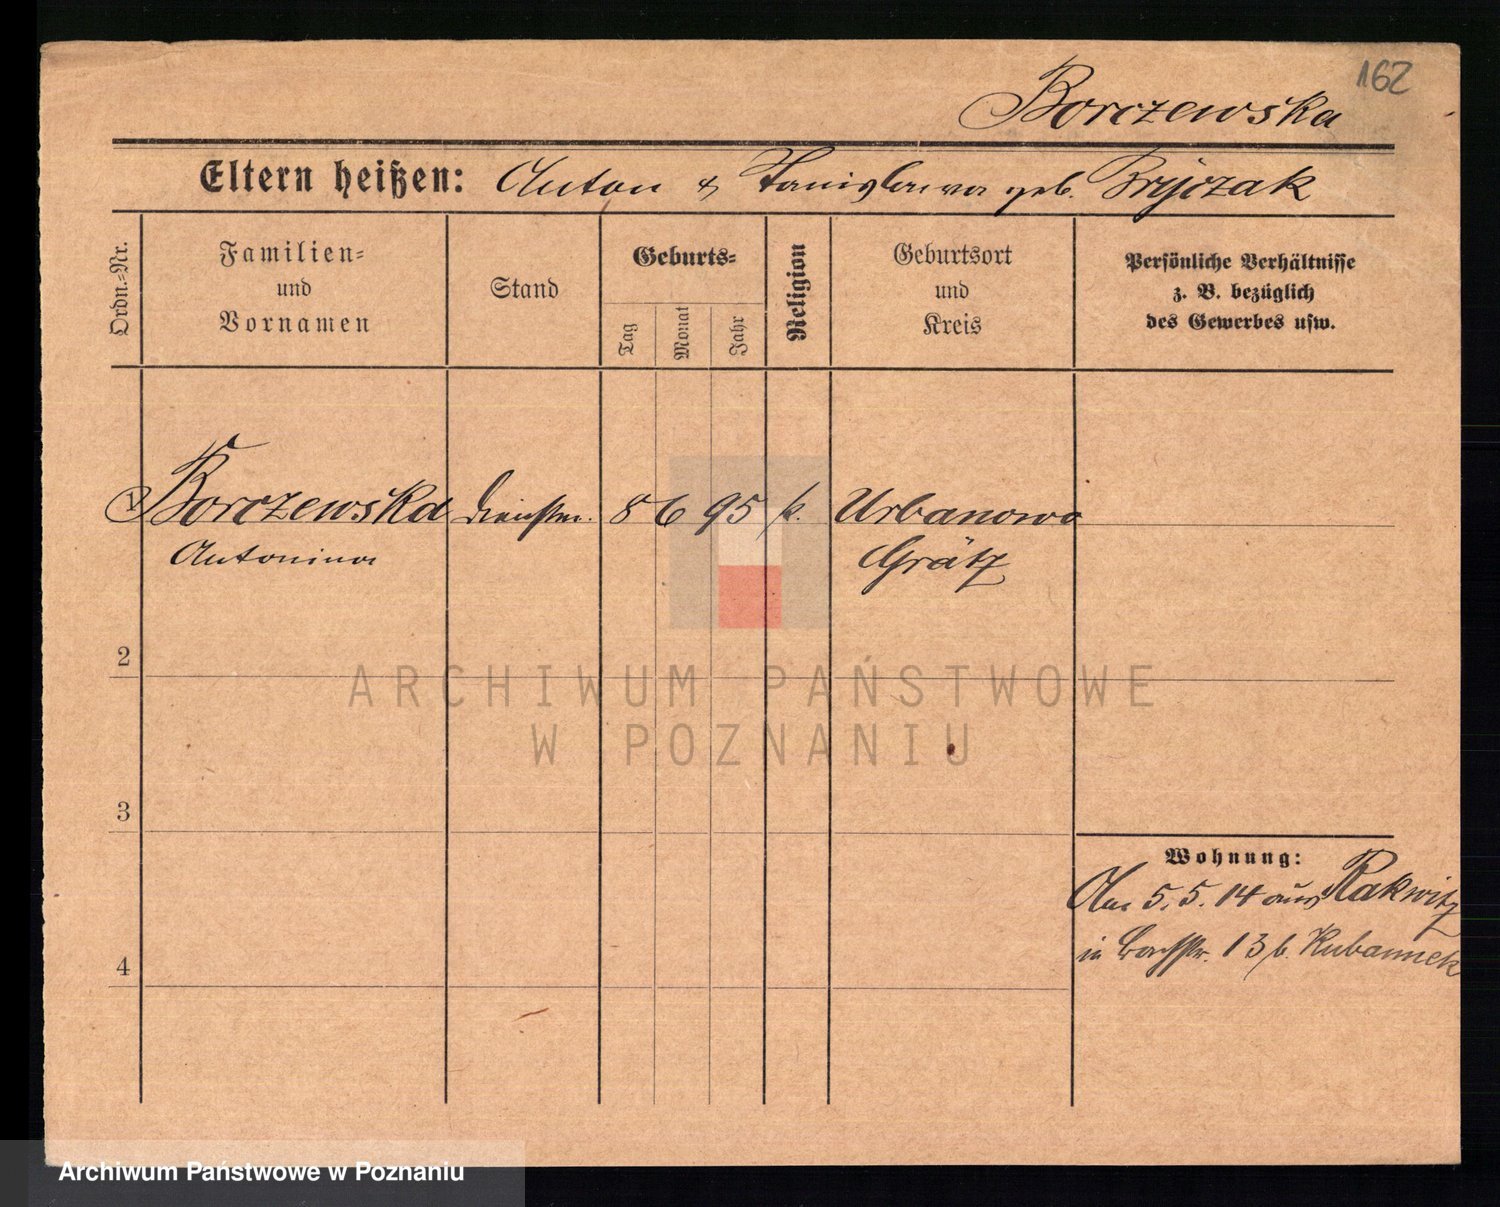 162
Borczewska
Eltern heißen: Anton & Stanislawa geb. Bryczak
Ordn.=Nr.
Familien=
und
Vornamen
Stand
Geburts=
Tag
Monat
Jahr
Religion
Geburtsort
und
Kreis
Persönliche Verhältnisse
z. B. bezüglich
des Gewerbes usw.
1 Borczewska Dienstm. 8 6 95 k. Urbanowo
Antonina Grätz
2
ARCHIWUM PAŃSTWOWE
W POZNANIU
3
Wohnung:
Am 5. 5. 14 aus Rakwitz
in 13 b. Kubannek
4
Archiwum Państwowe w Poznaniu